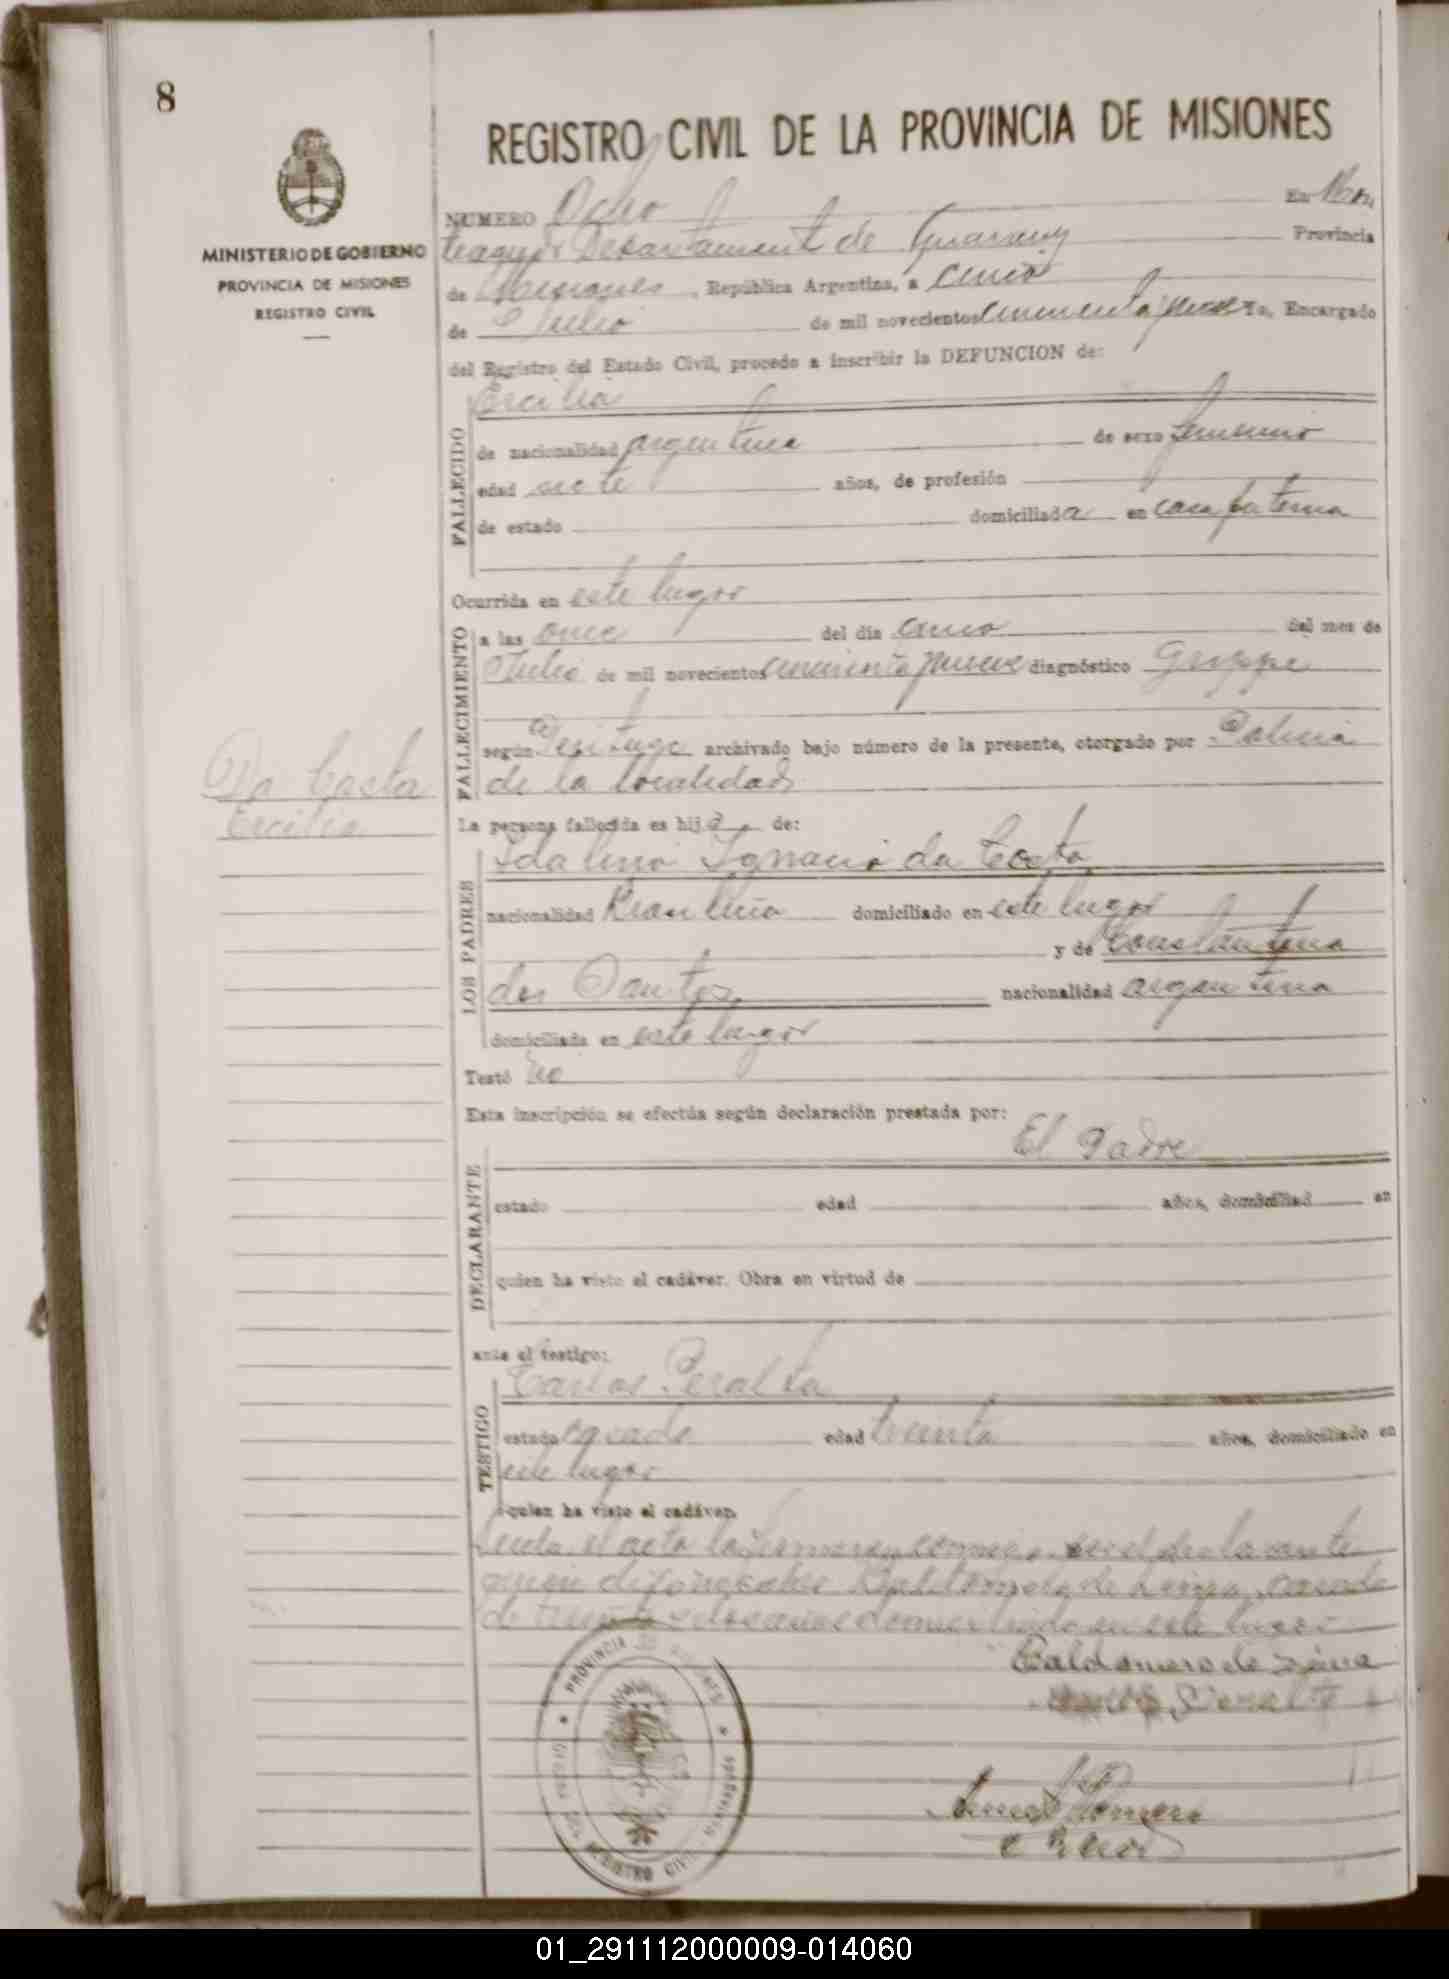 8
REGISTRO CIVIL DE LA PROVINCIA DE MISIONES
MINISTERIO DE GOBIERNO
PROVINCIA DE MISIONES
REGISTRO CIVIL
NUMERO Ocho En Mon
teagudo Departamento de Guarany Provincia
de Misiones, República Argentina, a cinco
de Julio de mil novecientos cincuenta y nueve Yo, Encargado
del Registro del Estado Civil, procedo a inscribir la DEFUNCION de:
Ercilia
FALLECIDO
de nacionalidad argentina de sexo femenino
edad siete años, de profesión
de estado domiciliada en casa paterna
Ocurrida en este lugar
FALLECIMIENTO
a las once del día cinco del mes de
Julio de mil novecientos cincuenta y nueve diagnóstico Grippe
según archivado bajo número de la presente, otorgado por Policia
de la localidad
Da Costa
Ercilia
La persona fallecida es hija de:
LOS PADRES
Idalino Ignacio da Costa
nacionalidad Brasileña domiciliado en este lugar
y de Constantina
dos Santos nacionalidad argentina
domiciliada en este lugar
Testó no
Esta inscripción se efectúa según declaración prestada por:
El Padre
DECLARANTE
estado edad años, domiciliad en
quien ha visto el cadáver. Obra en virtud de
ante el testigo:
Carlos Peralta
TESTIGO
estado casado edad treinta años, domiciliado en
este lugar
quien ha visto el cadáver.
Leida el acta la firmaron conmigo por el declarante
quien dijo no saber Baldomero de Lima, casado
de treinta y dos años domiciliado en este lugar
Baldomero de Lima
Peralta
PROVINCIA DE MISIONES
REGISTRO CIVIL
Monteagudo
Romero
01_291112000009-014060